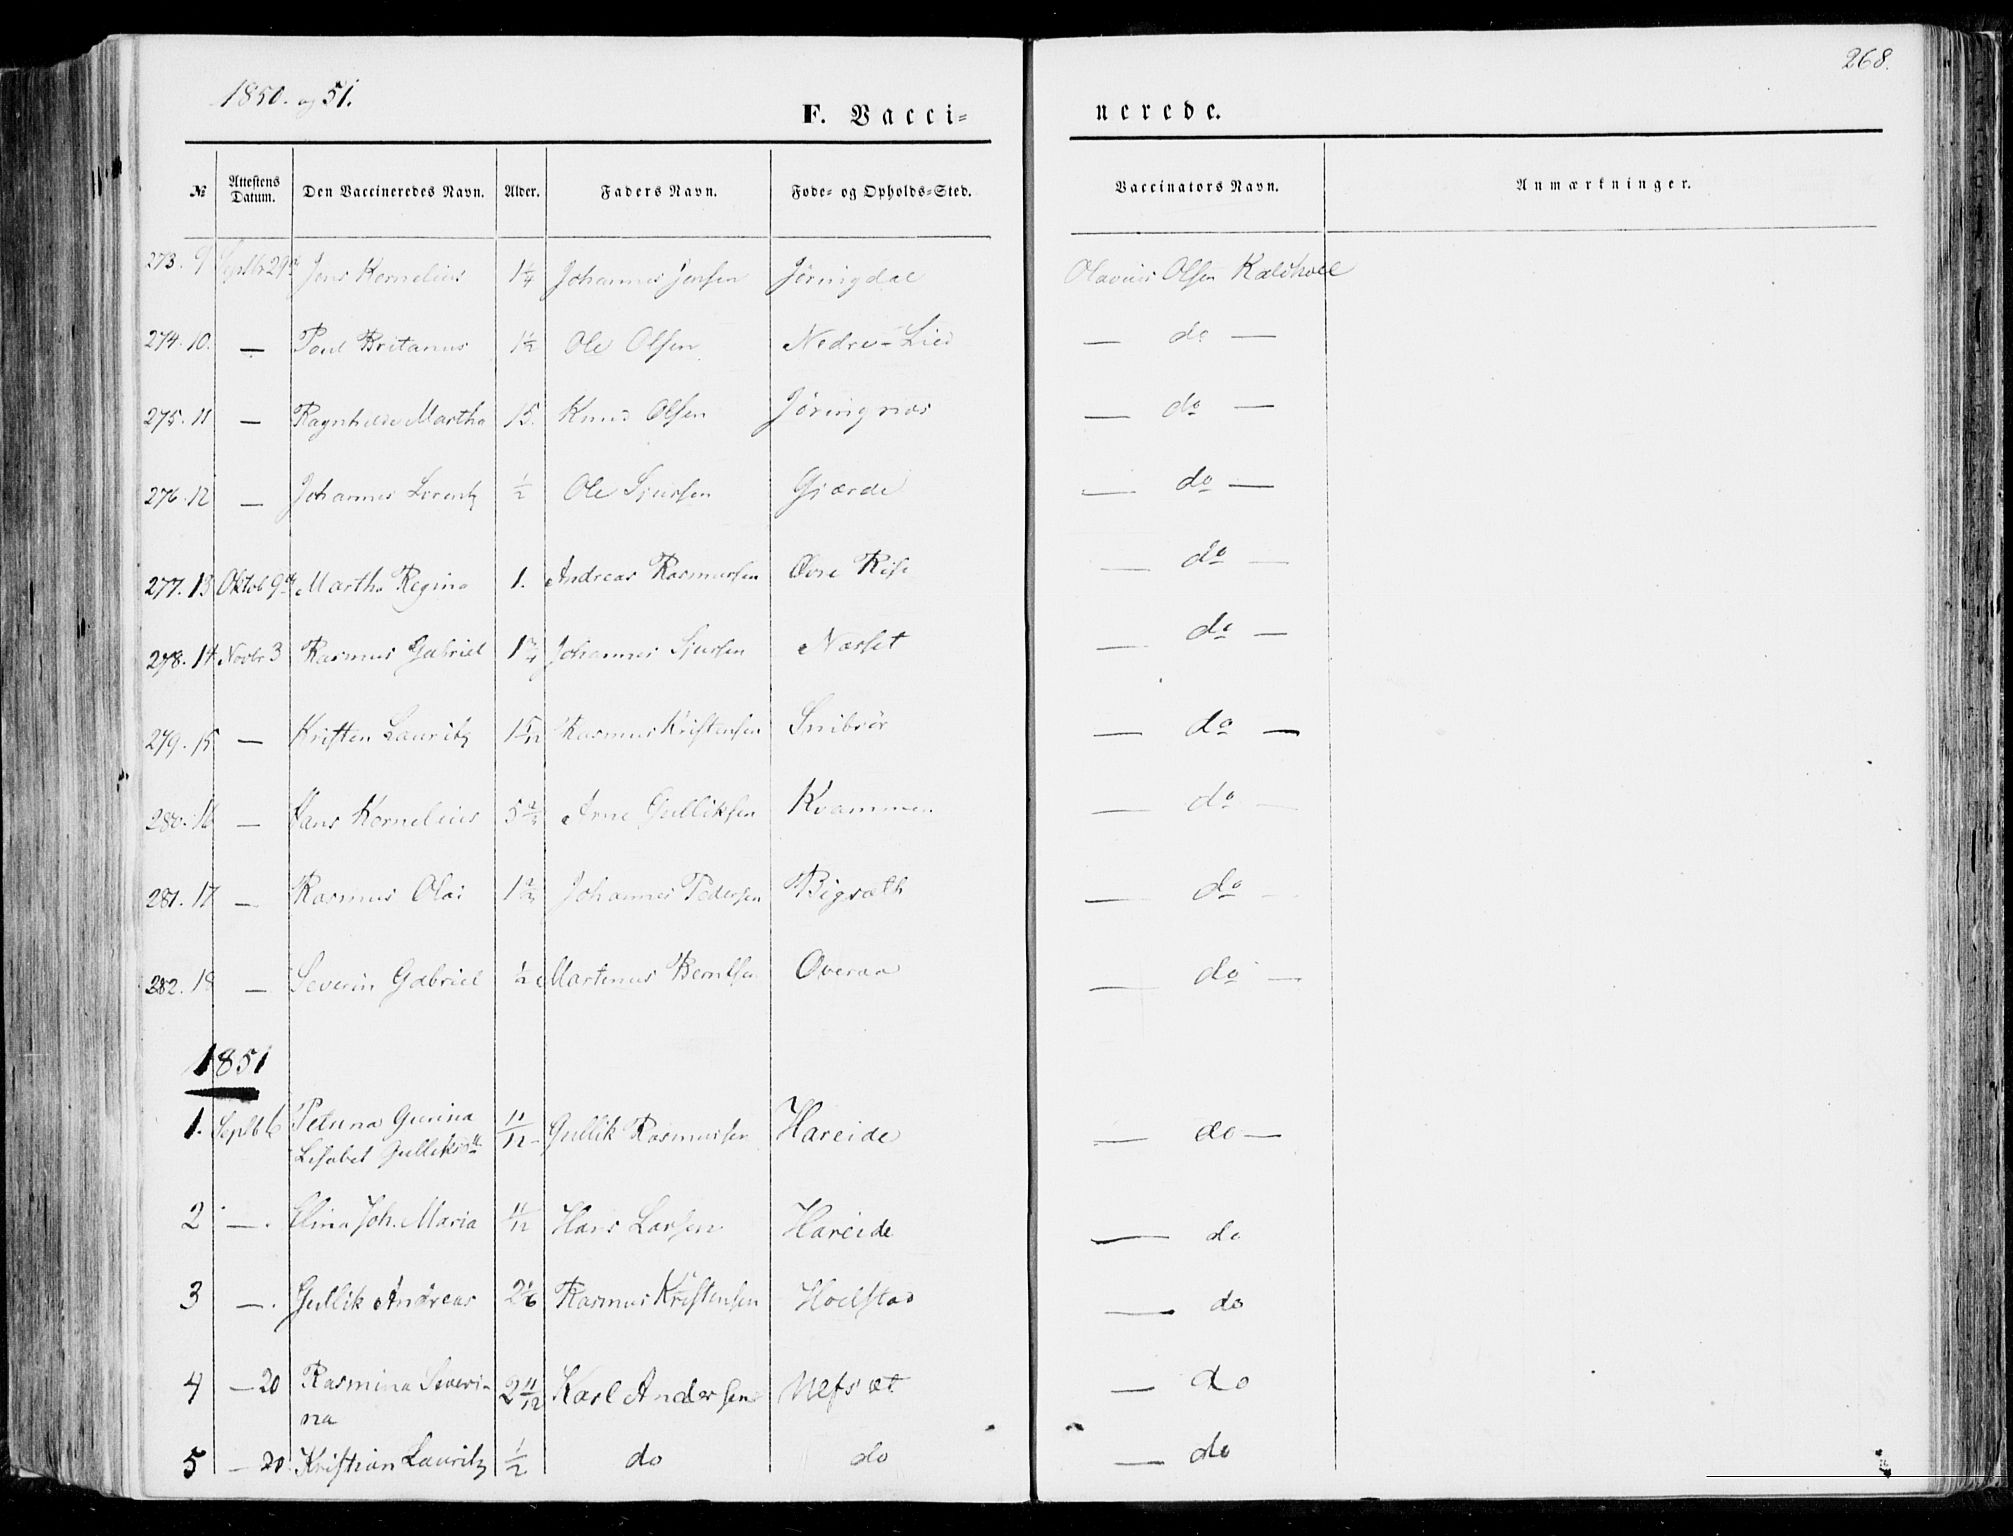 268.
1850. og 51.
F. Vacci= nerede.
№ Attestens Datum. Den Vaccineredes Navn. Alder. Faders Navn. Føde- og Opholds-Sted. Vaccinators Navn. Anmærkninger.
273. 9 Septbr 29 Jens Kornelius 1 1/4 Johannes Jensen Jøringdal Olavius Olsen Kaldhoel
274. 10. — Poul Britanus 1 1/2 Ole Olsen Nedre-Lied — do —
275. 11 — Ragnhilde Martha 15. Knud Olsen Jøringnæs — do —
276. 12 — Johannes Lorentz 1/2 Ole Sjursen Gjærde — do —
277. 13 Oktob 9 Martha Regina 1. Andreas Rasmussen Øvre Rise — do —
278. 14 Novbr 3 Rasmus Gabriel Johannes Sjursen Næsset — do —
279. 15 — Kristen Lauritz 1 5/12 Rasmus Kristensen Snibsør — do —
280. 16 — Hans Kornelius Arne Gulliksen Kvammen — do —
281. 17 — Rasmus Olai Johannes Pedersen Bigsæth — do —
282. 18 — Severin Gabriel 1/2 Martinus Berntsen Overaa — do —
1851
1. Septb 6 Petrina Gurina 11/12 Gullik Rasmussen Hareide — do —
Lisabet Gulliksd
2 —. Elina Joh. Maria 11/12 Hans Larsen Hareide — do
3 —. Gullik Andreas 2 1/6 Rasmus Kristensen Hoelstad — do
4 — 20 Rasmina Severi- 2 11/12 Karl Andersen Ulfsæt — do
na
5 — 20 Kristian Lauritz 1/2 do do — do